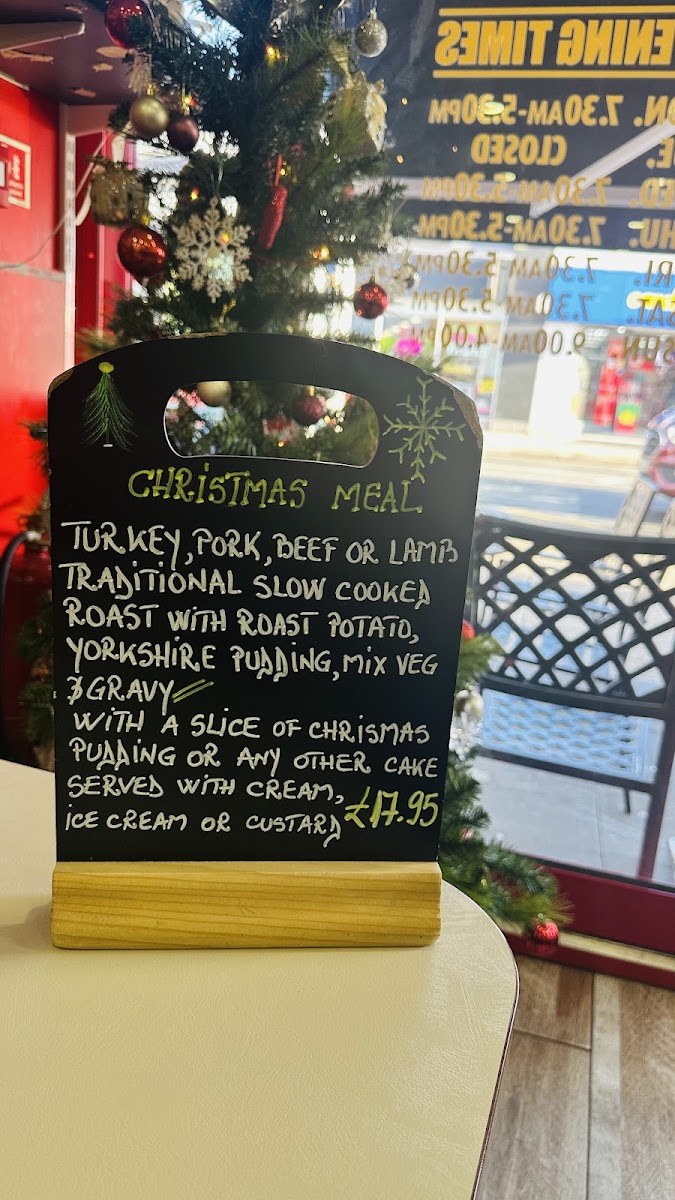 ENING TIMES
N. 7.30AM-5.30PM
E. CLOSED
ED. 7.30AM-5.30PM
HU. 7.30AM-5.30PM
RI. 7.30AM-5.30PM
SAT. 7.30AM-5.30PM
SUN 9.00AM-4.00PM
CHRISTMAS MEAL
TURKEY, PORK, BEEF OR LAMB
TRADITIONAL SLOW COOKED
ROAST WITH ROAST POTATO,
YORKSHIRE PUDDING, MIX VEG
& GRAVY
WITH A SLICE OF CHRISMAS
PUDDING OR ANY OTHER CAKE
SERVED WITH CREAM,
ICE CREAM OR CUSTARD £17.95